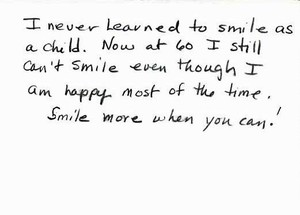 I never learned to smile as
a child. Now at 60 I still
can't smile even though I
am happy most of the time.
Smile more when you can!